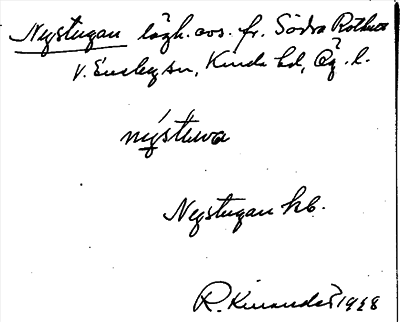 Nystugan lägh. avs. fr. Södra Rothult
V. Eneby sn, Kinda hd, Ög. l.
nystuwa
Nystugan hb.
R. Kinander 1928